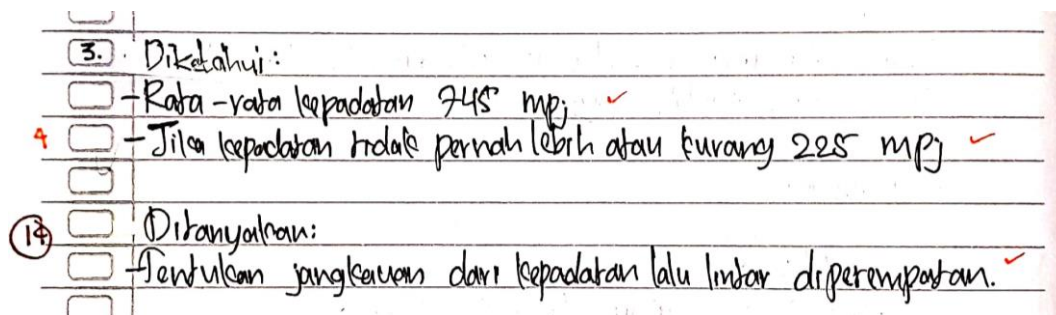 3. Diketahui:
- Rata-rata kepadatan 745 mpj
4 - Jika kepadatan tidak pernah lebih atau kurang 225 mpj
14 Ditanyakan:
- Tentukan jangkauan dari kepadatan lalu lintas diperempatan.